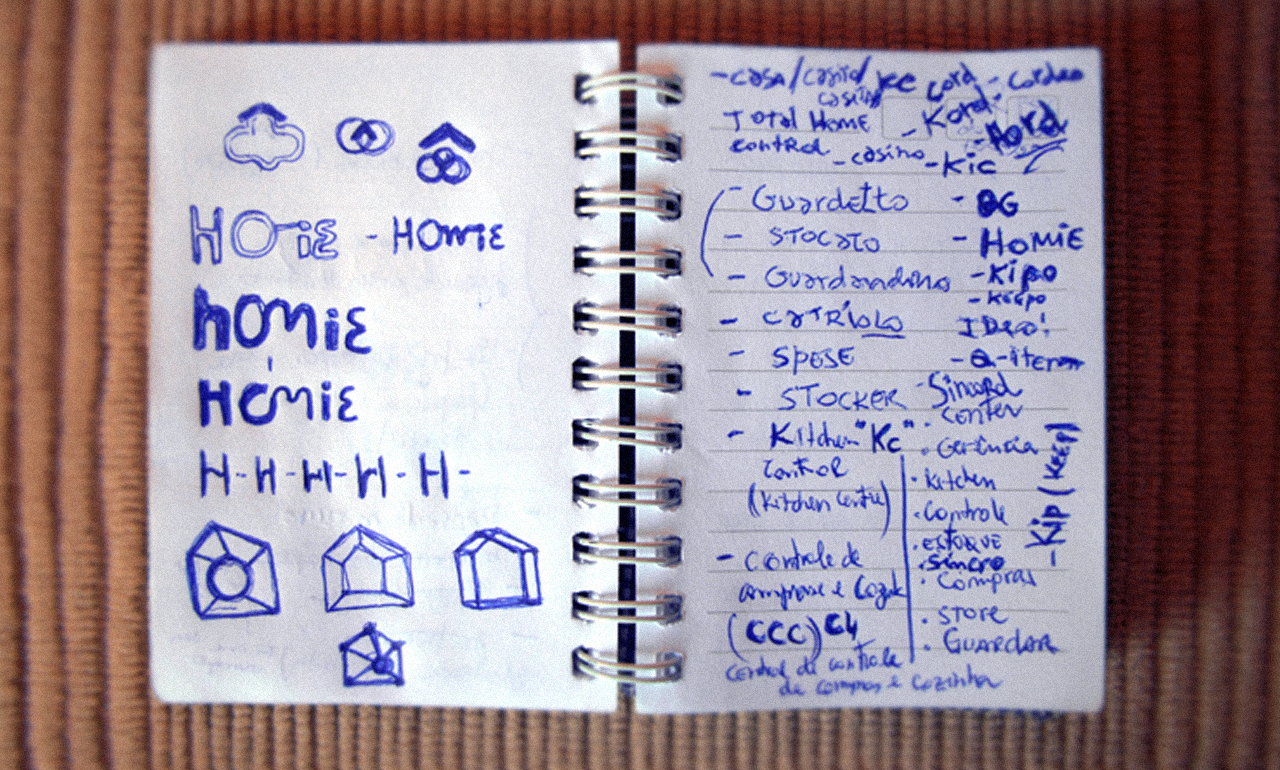 HOmiE - HOmiE
hOmiE
HOmiE
H-H-H-H-H-
- casa/casita/
casita
Cord - Cordao
Total Home
- Kord
- Hord
control - casino - Kic
- Guardetto - BG
- STOCATO - HOMiE
- Guardandino - Kipo
- Keepo
- CATRÍOLO IDeO!
- SPESE - Q-item
- STOCKER
Center
- Kitchen "Kc" . Gerência
control . Kitchen
(Kitchen Centre) . Controle
. ESTOQUE
. Sincro
- Controle de . Compras
compras e Cozinh
. STORE
(CCC) C4 . GUARDAR
central de controle
de compras e cozinha
- Kip (KEEP)